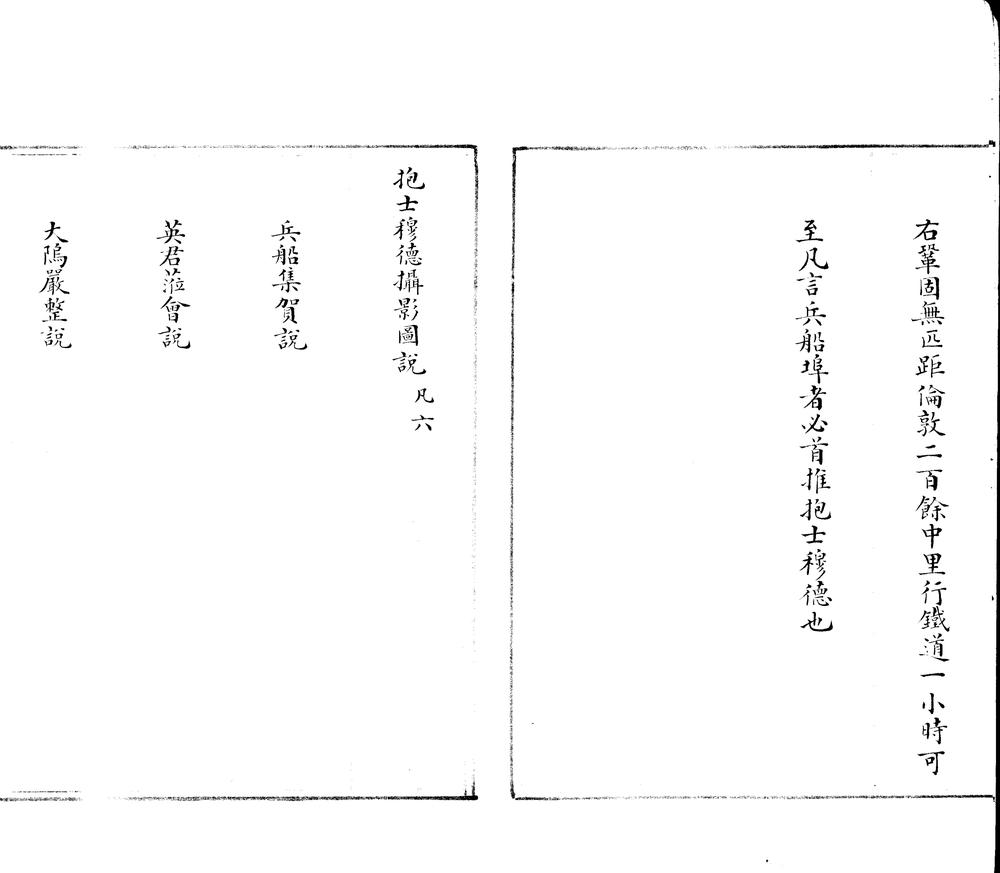 右鞏固無匹距倫敦二百餘中里行鐵道一小時可
至凡言兵船埠者必首推抱士穆德也
抱士穆德攝影圖說 凡六
兵船集賀說
英君蒞會說
大隝嚴整說